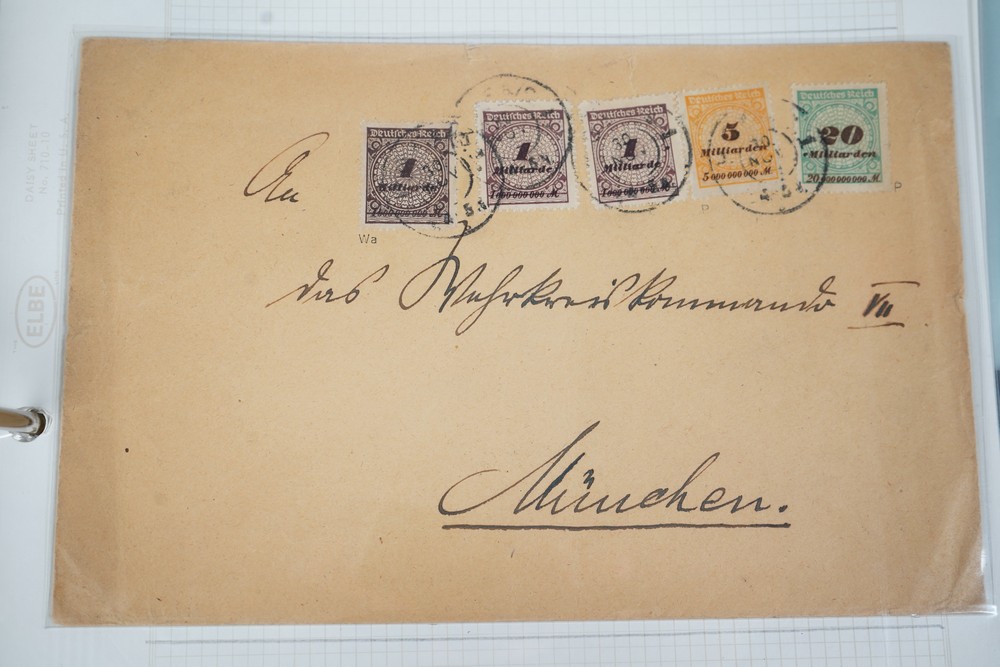 Deutsches Reich
1
Milliarde
1 000 000 000 M
Deutsches Reich
1
Milliarde
1 000 000 000 M
Deutsches Reich
1
Milliarde
1 000 000 000 M
Deutsches Reich
5
Milliarden
5 000 000 000 M
Deutsches Reich
20
Milliarden
20 000 000 000 M
Wa
P
P
An
das Wehrkreiskommando VII
München.
DAISY SHEET
No. 210-10
ELBE